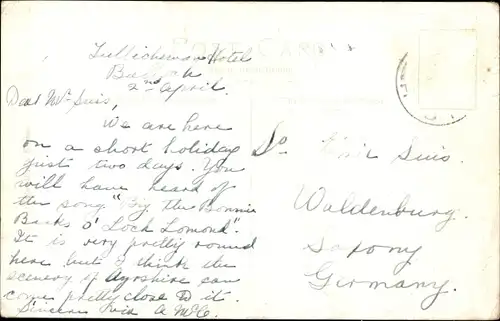 Tullichewan Hotel
Balloch
2nd April.
Dear Mr Suis,
We are here
on a short holiday
just two days. You
will have heard of
the song "By the Bonnie
Banks o' Loch Lomond".
It is very pretty round
here but I think the
scenery of Ayrshire can
come pretty close to it.
Suis.
Waldenburg.
Saxony
Germany.